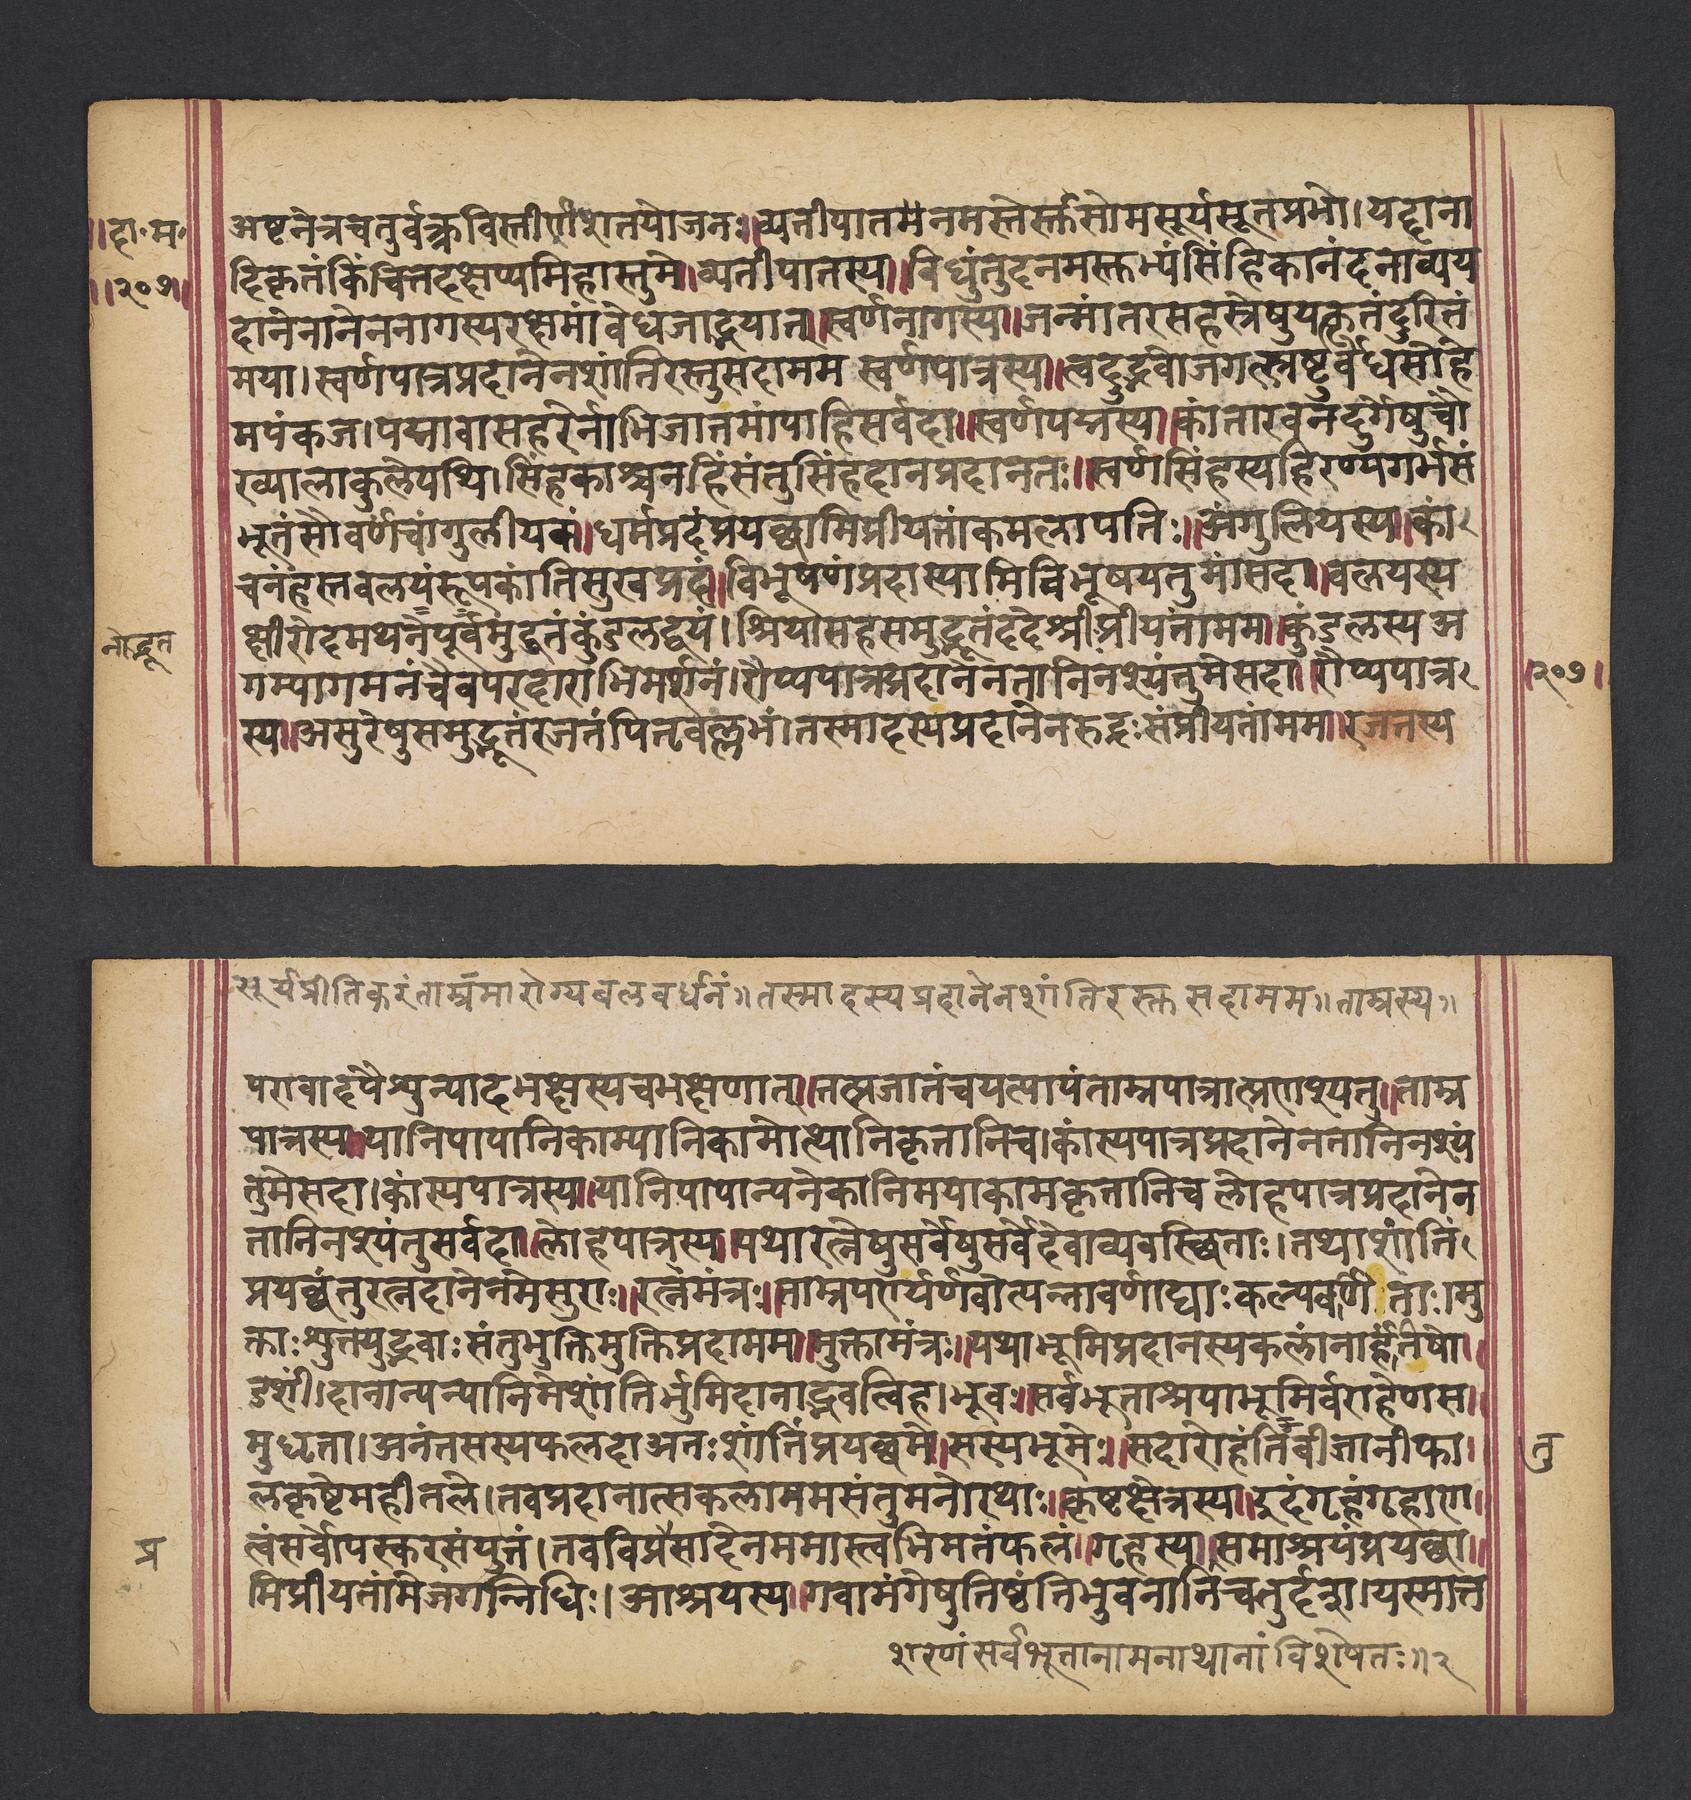 ॥दा॰म॰
॥२०७॥
अष्टनेत्रचतुर्वक्रविस्तीर्णशतयोजनः॥व्यतीपातमनमस्तेर्स्त्तसोमसूर्यसूतप्रभो।यद्दाना
दिकृतंकिंचित्तदक्षय्यमिहास्तुमे॥व्यतीपातस्य॥विधुंतुदनमस्तुभ्यंसिंहिकानंदनाव्यय
दानेनानेननागस्यरक्षमांवेधजाद्भयात्॥स्वर्णनागस्य॥जन्मांतरसहस्त्रेषुयत्कृतंदुरितं
मया।स्वर्णपात्रप्रदानेनशांतिरस्तुसदामम स्वर्णपात्रस्य॥त्वदुद्भवोजगत्स्त्रष्टुर्वेधसोहे
मपंकज।पद्मावासहरेर्नाभिजातमांपाहिसर्वदा॥स्वर्णपद्मस्य॥कांतारवनदुर्गेषुचौ
रव्यालाकुलेपथि।सिंहकाश्चनहिंसंतुसिंहदानप्रदानतः॥स्वर्णसिंहस्यहिरण्यगर्भसं
भूतंसौवर्णंचांगुलीयकं॥धर्मप्रदंप्रयच्छामिप्रीयतांकमलापतिः॥अंगुलियस्य॥कां
चनंहस्तवलयंरूपकांतिसुखप्रदं॥विभूषणंप्रदास्यामिविभूषयतुमांसदा॥वलयस्य
क्षीरोदमथनेपूर्वमुद्धृतंकुंडलद्वयं।श्रियासहसमुद्भूतंददेश्रीःप्रीयतांमम॥कुंडलस्य अ
नोद्भूत
गम्यागमनंचैवपरदाराभिमर्शनं।रौप्यपात्रप्रदानेनतानिनश्यंतुमेसदा॥रौप्यपात्र
॥२०७॥
स्य॥असुरेषुसमुद्भूतंरजतंपितृवल्लभं।तस्मादस्यप्रदानेनरुद्रःसंप्रीयतांमम॥रजतस्य
सूर्यप्रीतिकरंताम्रमारोग्यबलवर्धनं॥तस्मादस्यप्रदानेनशांतिरस्तुसदामम॥ताम्रस्य॥
परावादपैशुन्यादभक्ष्यस्यचभक्षणात्॥तत्प्रजातंचयत्पापंताम्रपात्रात्प्रणाश्यतु॥ताम्र
पात्रस्य॥यानिपापानिकाम्यानिकामोत्थानिकृतानिच।कांस्यपात्रप्रदानेनतानिनश्यं
तुमेसदा।कांस्यपात्रस्य॥यानिपापान्यनेकानिमयाकामकृतानिच लोहपात्रप्रदानेन
तानिनश्यंतुसर्वदा॥लोहपात्रस्य॥यथारत्नेषुसर्वेषुसर्वेदेवाव्यवस्थिताः।तथाशांतिं
प्रयच्छंतुरत्नदानेनमेसुराः॥रत्नमंत्रः॥ताम्रपर्ण्यर्णवोत्पन्नावर्णाढ्याःकल्पवर्णिताः।मु
क्ताःशुक्तयुद्भवाःसंतुभुक्तिमुक्तिप्रदामम॥मुक्तामंत्रः॥यथाभूमिप्रदानस्यकलांनार्हंतिषो॥
डशीं।दानान्यन्यानिमेशांतिर्भूमिदानाद्भवत्विह।भूवः॥सर्वभूताश्रयाभूमिर्वराहेणस॥
मुधृता।अनंतसस्यफलदाअतःशांतिंप्रयच्छमे॥सस्यभूमेः॥सदारोहंतिबीजानीफा॥
तु
लकृष्टेमहीतले।तवप्रदानात्सकलाममसंतुमनोरथाः॥कृष्टक्षेत्रस्य॥इदंगृहंगृहाण॥
त्वंसर्वोपस्करसंयुतं।तवविप्रसादेनममास्त्वभिमतंफलं॥गृहस्य॥समाश्रयंप्रयच्छा॥
प्र
मिप्रीयतांमेजगन्निधिः।आश्रयस्य॥गवामंगेषुतिष्ठंतिभुवनानिचतुर्दश।यस्मात्त
शरणंसर्वभूतानामनाथानांविशेषतः॥२